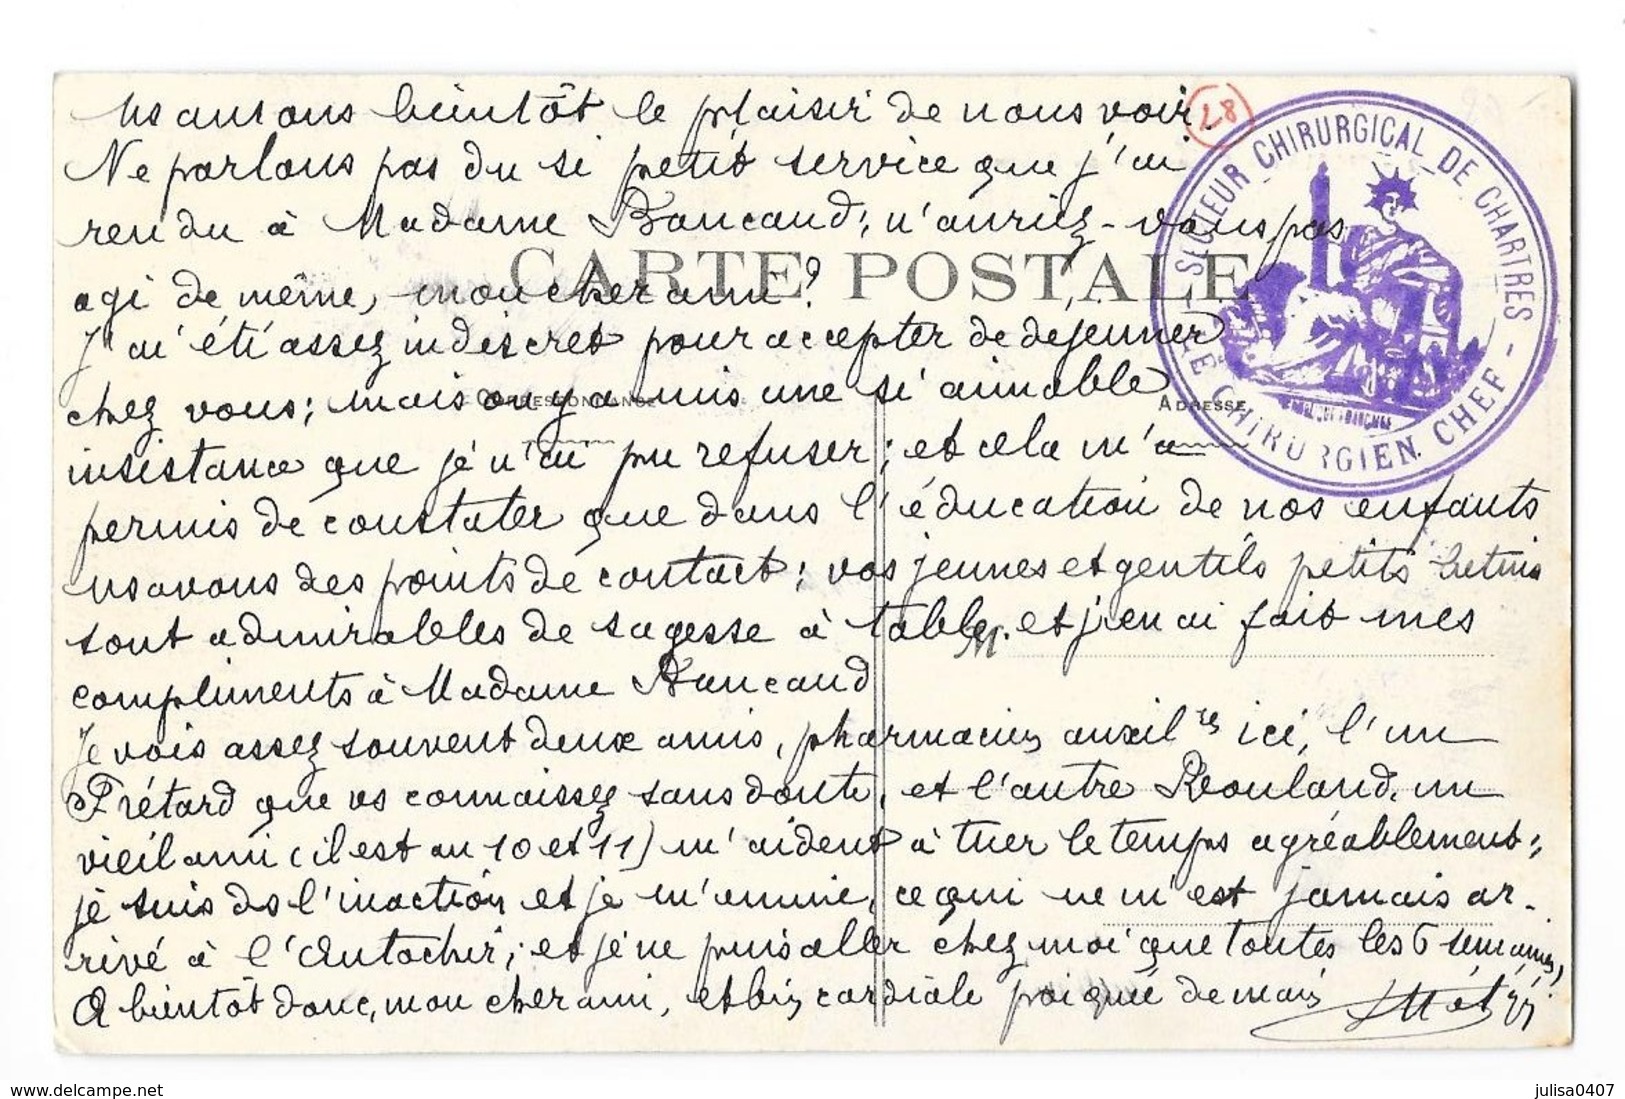 ns aurons bientôt le plaisir de nous voir.
28
Ne parlons pas du si petit service que j'ai
rendu à Madame Bancaud; n'auriez-vous pas
agi de même, mon cher ami?
CARTE POSTALE
J'ai été assez indiscret pour accepter de déjeuner
chez vous; mais on y a mis une si aimable
CORRESPONDANCE
ADRESSE
insistance que je n'ai pu refuser; et cela m'a
permis de constater que dans l'éducation de nos enfants
ns avons des points de contact: vos jeunes et gentils petits
sont admirables de sagesse à table, et j'en ai fait mes
M
compliments à Madame Bancaud
Je vois assez souvent deux amis, pharmaciens auxil res ici, l'un
Frétard que vs connaissez sans doute, et l'autre Rouland, un
vieil ami (il est au 10 et 11) m'aident à tuer le temps agréablement;
je suis ds l'inaction et je m'ennuie, ce qui ne m'est jamais ar-
rivé à l'Autochir; et je ne puis aller chez moi que toutes les 6 semaines,
A bientôt donc, mon cher ami, et bien cordiale poignée de mains
SECTEUR CHIRURGICAL DE CHARTRES
LE CHIRURGIEN CHEF -
www.delcampe.net
julisa0407